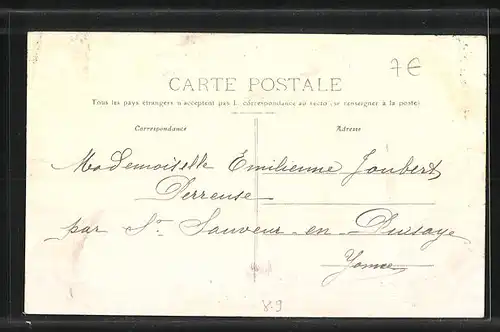 7€
CARTE POSTALE
Tous les pays étrangers n'acceptent pas la correspondance au recto (se renseigner à la poste)
Correspondance
Adresse
Mademoiselle Emilienne Joubert
Perreuse
par St Sauveur-en-Puisaye
Yonne
8.9